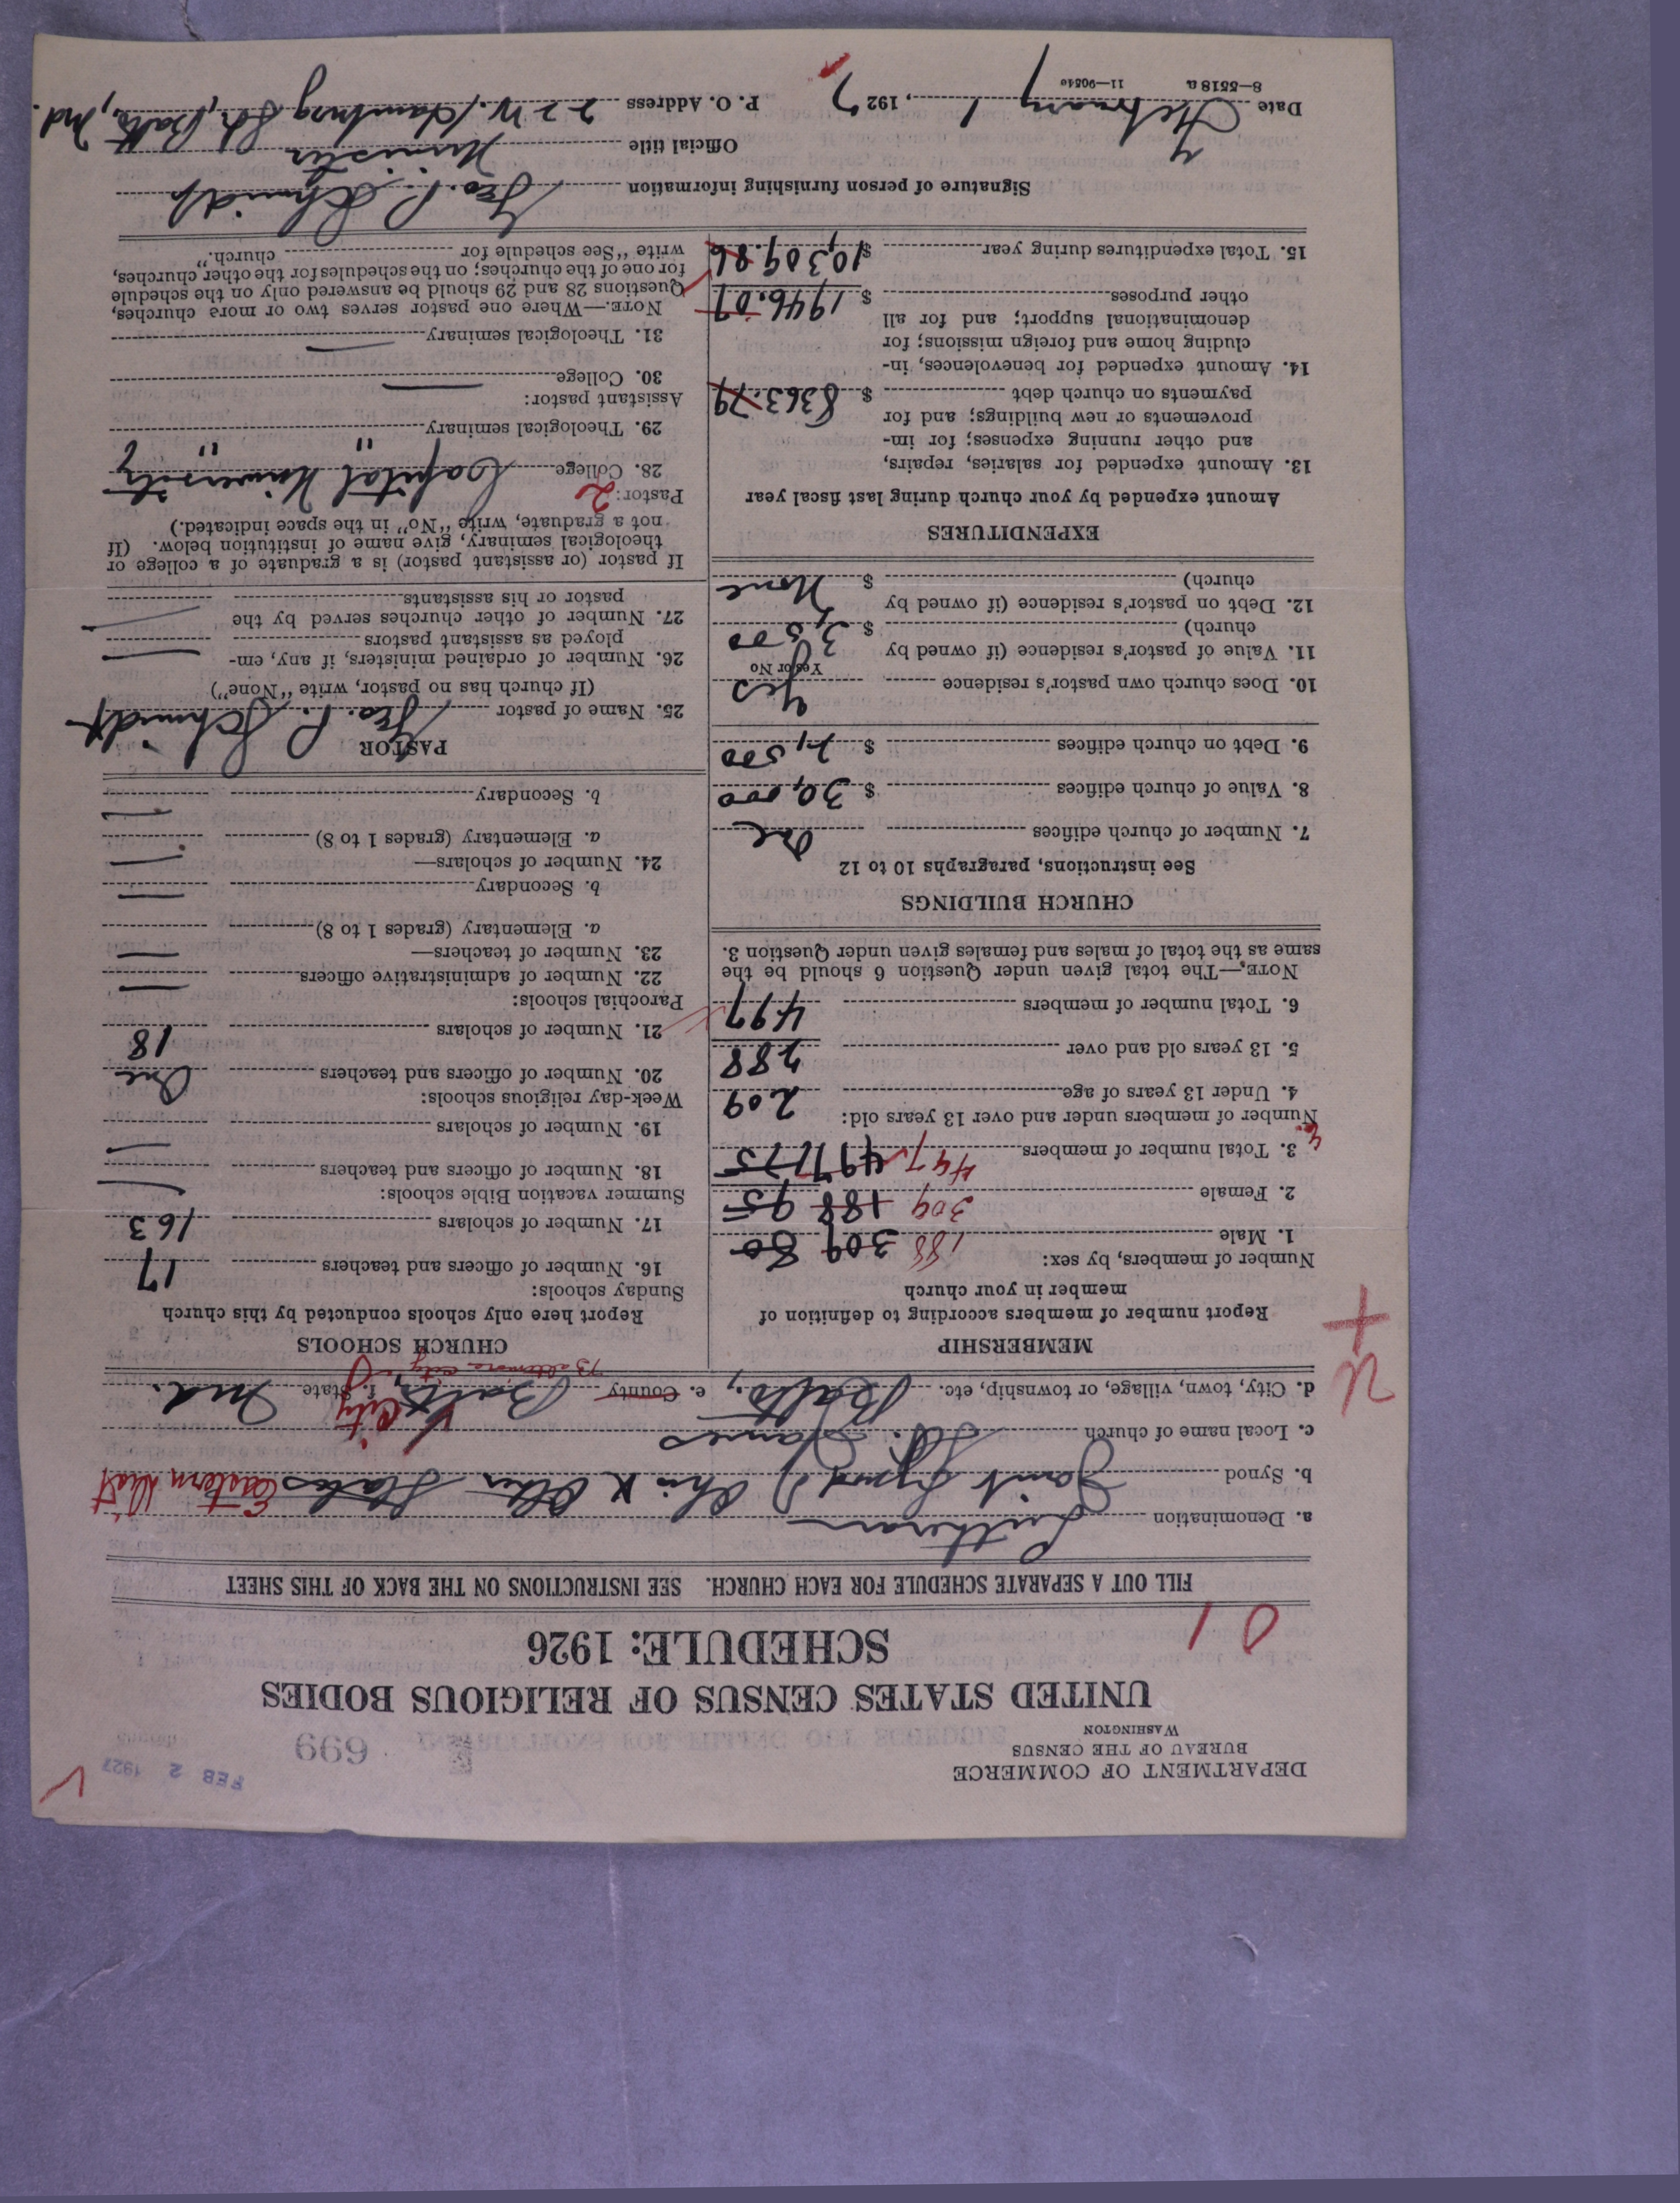 DEPARTMENT OF COMMERCE
BUREAU OF THE CENSUS
WASHINGTON
FEB 2 1927
699
UNITED STATES CENSUS OF RELIGIOUS BODIES
SCHEDULE: 1926
FILL OUT A SEPARATE SCHEDULE FOR EACH CHURCH. SEE INSTRUCTIONS ON THE BACK OF THIS SHEET
a. Denomination Lutheran
b. Synod Joint Synod Ohio & Other States Eastern Dist
c. Local name of church St. James
d. City, town, village, or township, etc. Balto., e. County Balto City f. State Md.
Baltimore City
MEMBERSHIP
Report number of members according to definition of
member in your church
Number of members, by sex:
1. Male 188 309 80
2. Female 309 188 95
3. Total number of members 497 497 175
Number of members under and over 13 years old:
4. Under 13 years of age 209
5. 13 years old and over 288
6. Total number of members 497
NOTE.—The total given under Question 6 should be the
same as the total of males and females given under Question 3.
CHURCH BUILDINGS
See instructions, paragraphs 10 to 12
7. Number of church edifices One
8. Value of church edifices $ 30,000
9. Debt on church edifices $ 2,500
10. Does church own pastor's residence Yes
Yes or No
11. Value of pastor's residence (if owned by
church) $ 3,500
12. Debt on pastor's residence (if owned by
church) $ None
EXPENDITURES
Amount expended by your church during last fiscal year
13. Amount expended for salaries, repairs,
and other running expenses; for im-
provements or new buildings; and for
payments on church debt $ 8363.79
14. Amount expended for benevolences, in-
cluding home and foreign missions; for
denominational support; and for all
other purposes $ 1946.07
15. Total expenditures during year $ 10,309.86
CHURCH SCHOOLS
Report here only schools conducted by this church
Sunday schools:
16. Number of officers and teachers 17
17. Number of scholars 163
Summer vacation Bible schools:
18. Number of officers and teachers —
19. Number of scholars —
Week-day religious schools:
20. Number of officers and teachers One
21. Number of scholars 18
Parochial schools:
22. Number of administrative officers —
23. Number of teachers—
a. Elementary (grades 1 to 8) —
b. Secondary —
24. Number of scholars—
a. Elementary (grades 1 to 8) —
b. Secondary —
PASTOR
25. Name of pastor Geo. P. Schmidt
(If church has no pastor, write "None")
26. Number of ordained ministers, if any, em-
ployed as assistant pastors —
27. Number of other churches served by the
pastor or his assistants —
If pastor (or assistant pastor) is a graduate of a college or
theological seminary, give name of institution below. (If
not a graduate, write "No" in the space indicated.)
Pastor: 2
28. College Capital University
29. Theological seminary " "
Assistant pastor:
30. College —
31. Theological seminary —
NOTE.—Where one pastor serves two or more churches,
Questions 28 and 29 should be answered only on the schedule
for one of the churches; on the schedules for the other churches,
write "See schedule for church."
Signature of person furnishing information Geo. P. Schmidt
Official title Minister
Date February 1, 1927 P. O. Address 22 W. Hamburg St., Balto., Md.
8—5518a 11—9054c